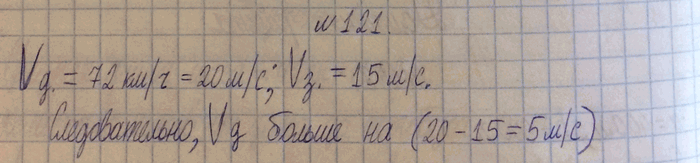 №121.
Vд. = 72 км/ч = 20 м/с; Vз. = 15 м/с.
Следовательно, Vд больше на (20 - 15 = 5 м/с)